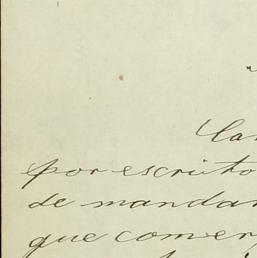 por escrito
de mandar
que comer